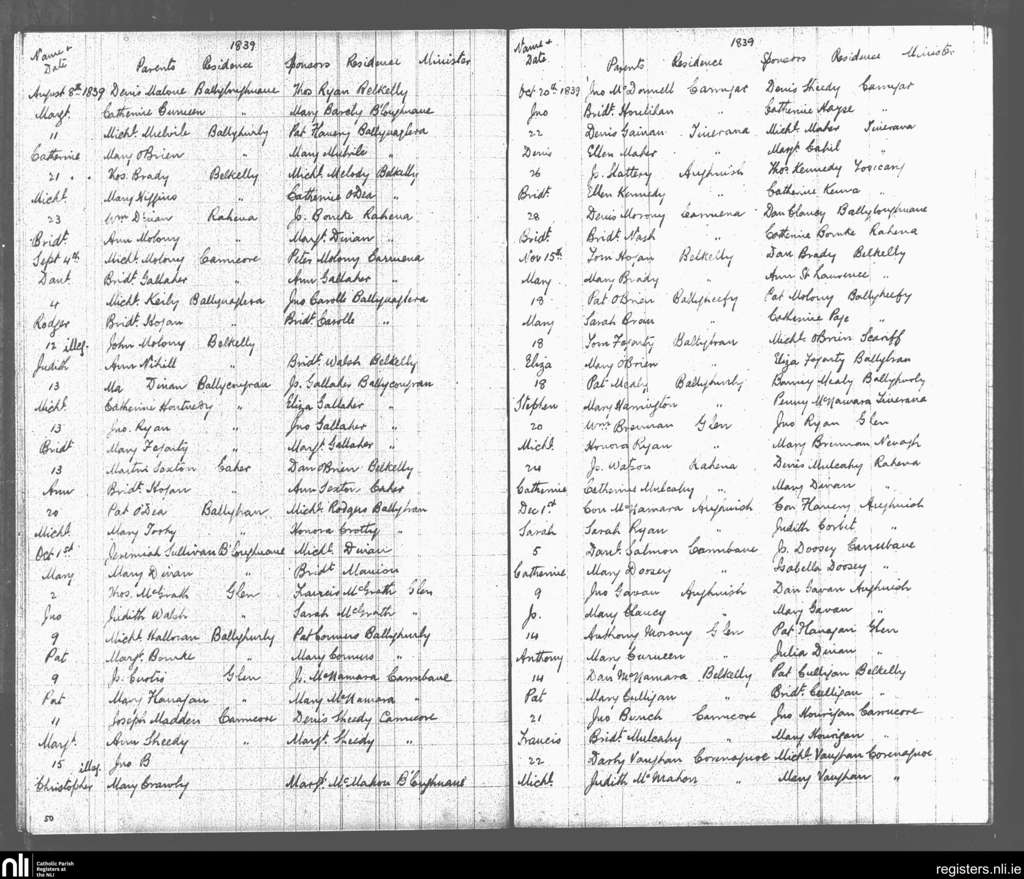 1839
Name + Date Parents Residence Sponsors Residence Minister
August 8th 1839 Denis Malone Ballyloughnane Thos Ryan Belkelly
Margt. Catherine Curneen " Mary Barcly B'loughnane
11 Michl. Mulvile Ballyhurly Pat Flanery Ballynaglera
Catherine Mary O'Brien " Mary Mulvile "
21 " " Thos. Brady Belkelly Michl. Melody Belkelly
Michl. Mary Higgins " Catherine O'Dea "
23 Wm Dinan Rahena Js. Bourke Rahena
Bridt. Ann Molony " Margt. Dinan "
Sept 4th Michl. Molony Carnicore Peter Molony
Danl. Bridt Gallaher " Ann Gallaher "
4 Michl. Keily Ballynaglera Jno Carolle Ballynaglera
Rodger Bridt. Hogan " Bridt. Carolle "
12 illeg. John Molony Belkelly
Judith Ann Nihill Bridt. Walsh Belkelly
13 Ma Dinan Ballycongran Js. Gallaher Ballycongran
Michl. Catherine " Eliza Gallaher "
13 Jno. Ryan " Jno Gallaher "
Bridt Mary Fogarty " Margt. Gallaher "
13 Martin Saxton Caher Dan O'Brien Belkelly
Ann Bridt. Hogan " Ann Sexton Caher
20 Pat O'Dea Ballybran Michl. Rodgers Ballybran
Michl. Mary " Honora Crotty "
Oct 1st Jeremiah Sullivan B'loughnane Michl. Dinan
Mary Mary Dinan " Bridt. Manion
2 Thos. McGrath Glen Francis McGrath Glen
Jno Judith Walsh " Sarah McGrath "
9 Michl. Halloran Ballyhurly Pat Conners Ballyhurly
Pat Margt. Bourke " Mary Conners "
9 Js. Curtis Glen Js. McNamara Carnebane
Pat Mary Flanagan " Mary McNamara "
11 Joseph Madden Carnicore Denis Sheedy Carnicore
Margt. Ann Sheedy " Margt. Sheedy "
15 illeg. Jno B
Christopher Mary Crawly Margt. McMahon B'loughnane
50
1839
Name + Date Parents Residence Sponsors Residence Minister
Oct 20th 1839 Jno McDonnell Carrugar Denis Sheedy Carrugar
Jno Bridt. Houlihan " Catherine Hayse "
22 Denis Gainan Tinerana Michl. Maher Tinerana
Denis Ellen Maher " Margt. Cahil "
26 Js. Slattery Aughnish Thos. Kennedy
Bridt. Ellen Kennedy " Catherine "
28 Denis Morony Carnuena Dan Clancy Ballyloughnane
Bridt. Bridt. Nash " Catherine Bourke Rahena
Nov 15th Tom Hogan Belkelly Dan Brady Belkelly
Mary Mary Brady " Ann St Lawrence "
18 Pat O'Brien Ballyheefy Pat Molony Ballyheefy
Mary Sarah " Catherine Page "
18 Tom Fogarty Ballybran Michl. O'Brien Scariff
Eliza Mary O'Brien " Eliza Fogarty Ballybran
18 Pat Mealy Ballyhurly Mealy Ballyhurly
Stephen Mary Harrington " Penny McNamara Tinerana
20 Wm Brennan Glen Jno Ryan Glen
Michl. Honora Ryan " Mary Brennan Nenagh
24 Js. Watson Rahena Denis Mulcahy Rahena
Catherine Catherine Mulcahy " Mary Dinan "
Dec 1st Con McNamara Aughnish Con Flanery Aughnish
Sarah Sarah Ryan " Judith Corbit "
5 Danl. Salmon Carnebane Js. Doosey Carnebane
Catherine Mary Doosey " Isabella Doosey "
9 Jno Gavan Aughnish Dan Gavan Aughnish
Js. Mary Clancy " Mary Gavan "
14 Anthony Morony Glen Pat Flanagan Glen
Anthony Mary Curneen " Julia Dinan "
14 Dan McNamara Belkelly Pat Culligan Belkelly
Pat Mary Culligan " Bridt. Culligan "
21 Jno Bunch Carnicore Jno Hourigan Carnicore
Francis Bridt Mulcahy " Mary Hourigan "
22 Darby Vaughan Michl. Vaughan
Michl. Judith McMahon " Mary Vaughan "
nli
Catholic Parish
Registers at
the NLI
registers.nli.ie